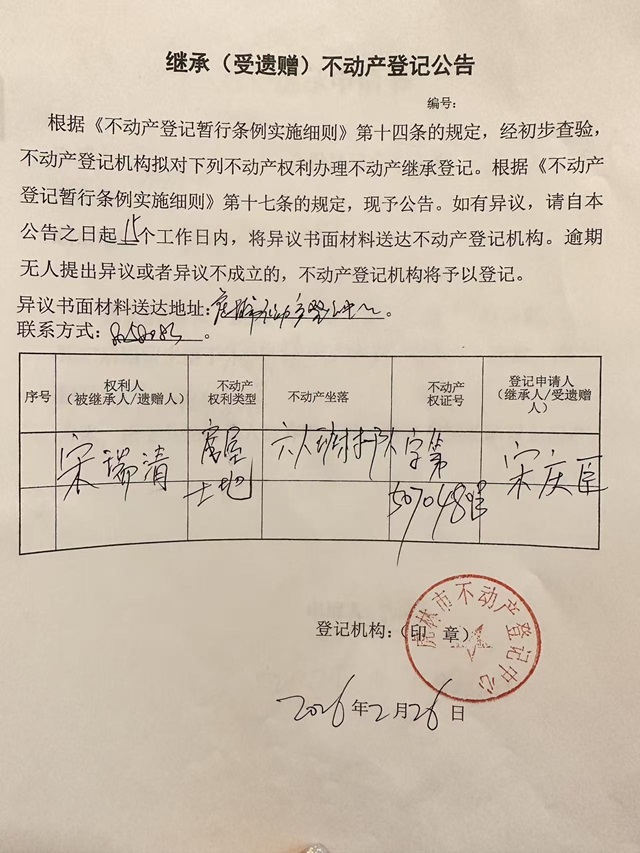 继承（受遗赠）不动产登记公告
编号：
根据《不动产登记暂行条例实施细则》第十四条的规定，经初步查验，
不动产登记机构拟对下列不动产权利办理不动产继承登记。根据《不动产
登记暂行条例实施细则》第十七条的规定，现予公告。如有异议，请自本
公告之日起15个工作日内，将异议书面材料送达不动产登记机构。逾期
无人提出异议或者异议不成立的，不动产登记机构将予以登记。
异议书面材料送达地址：虎林市不动产登记中心。
联系方式：
序号
权利人
（被继承人/遗赠人）
不动产
权利类型
不动产坐落
不动产
权证号
登记申请人
（继承人/受遗赠
人）
宋瑞清
房屋
土地
字第
507048号
宋庆臣
登记机构：（印 章）
虎林市不动产登记中心
2026年2月26日